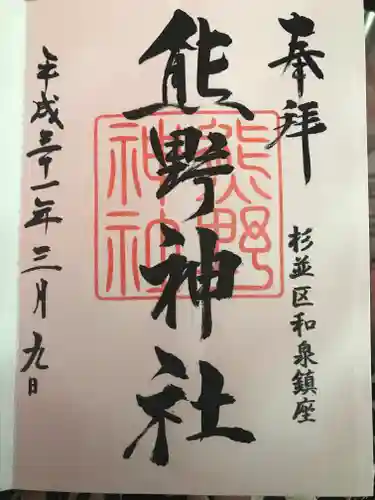 奉拝
杉並区和泉鎮座
熊野神社
熊野
神社
平成三十一年三月九日